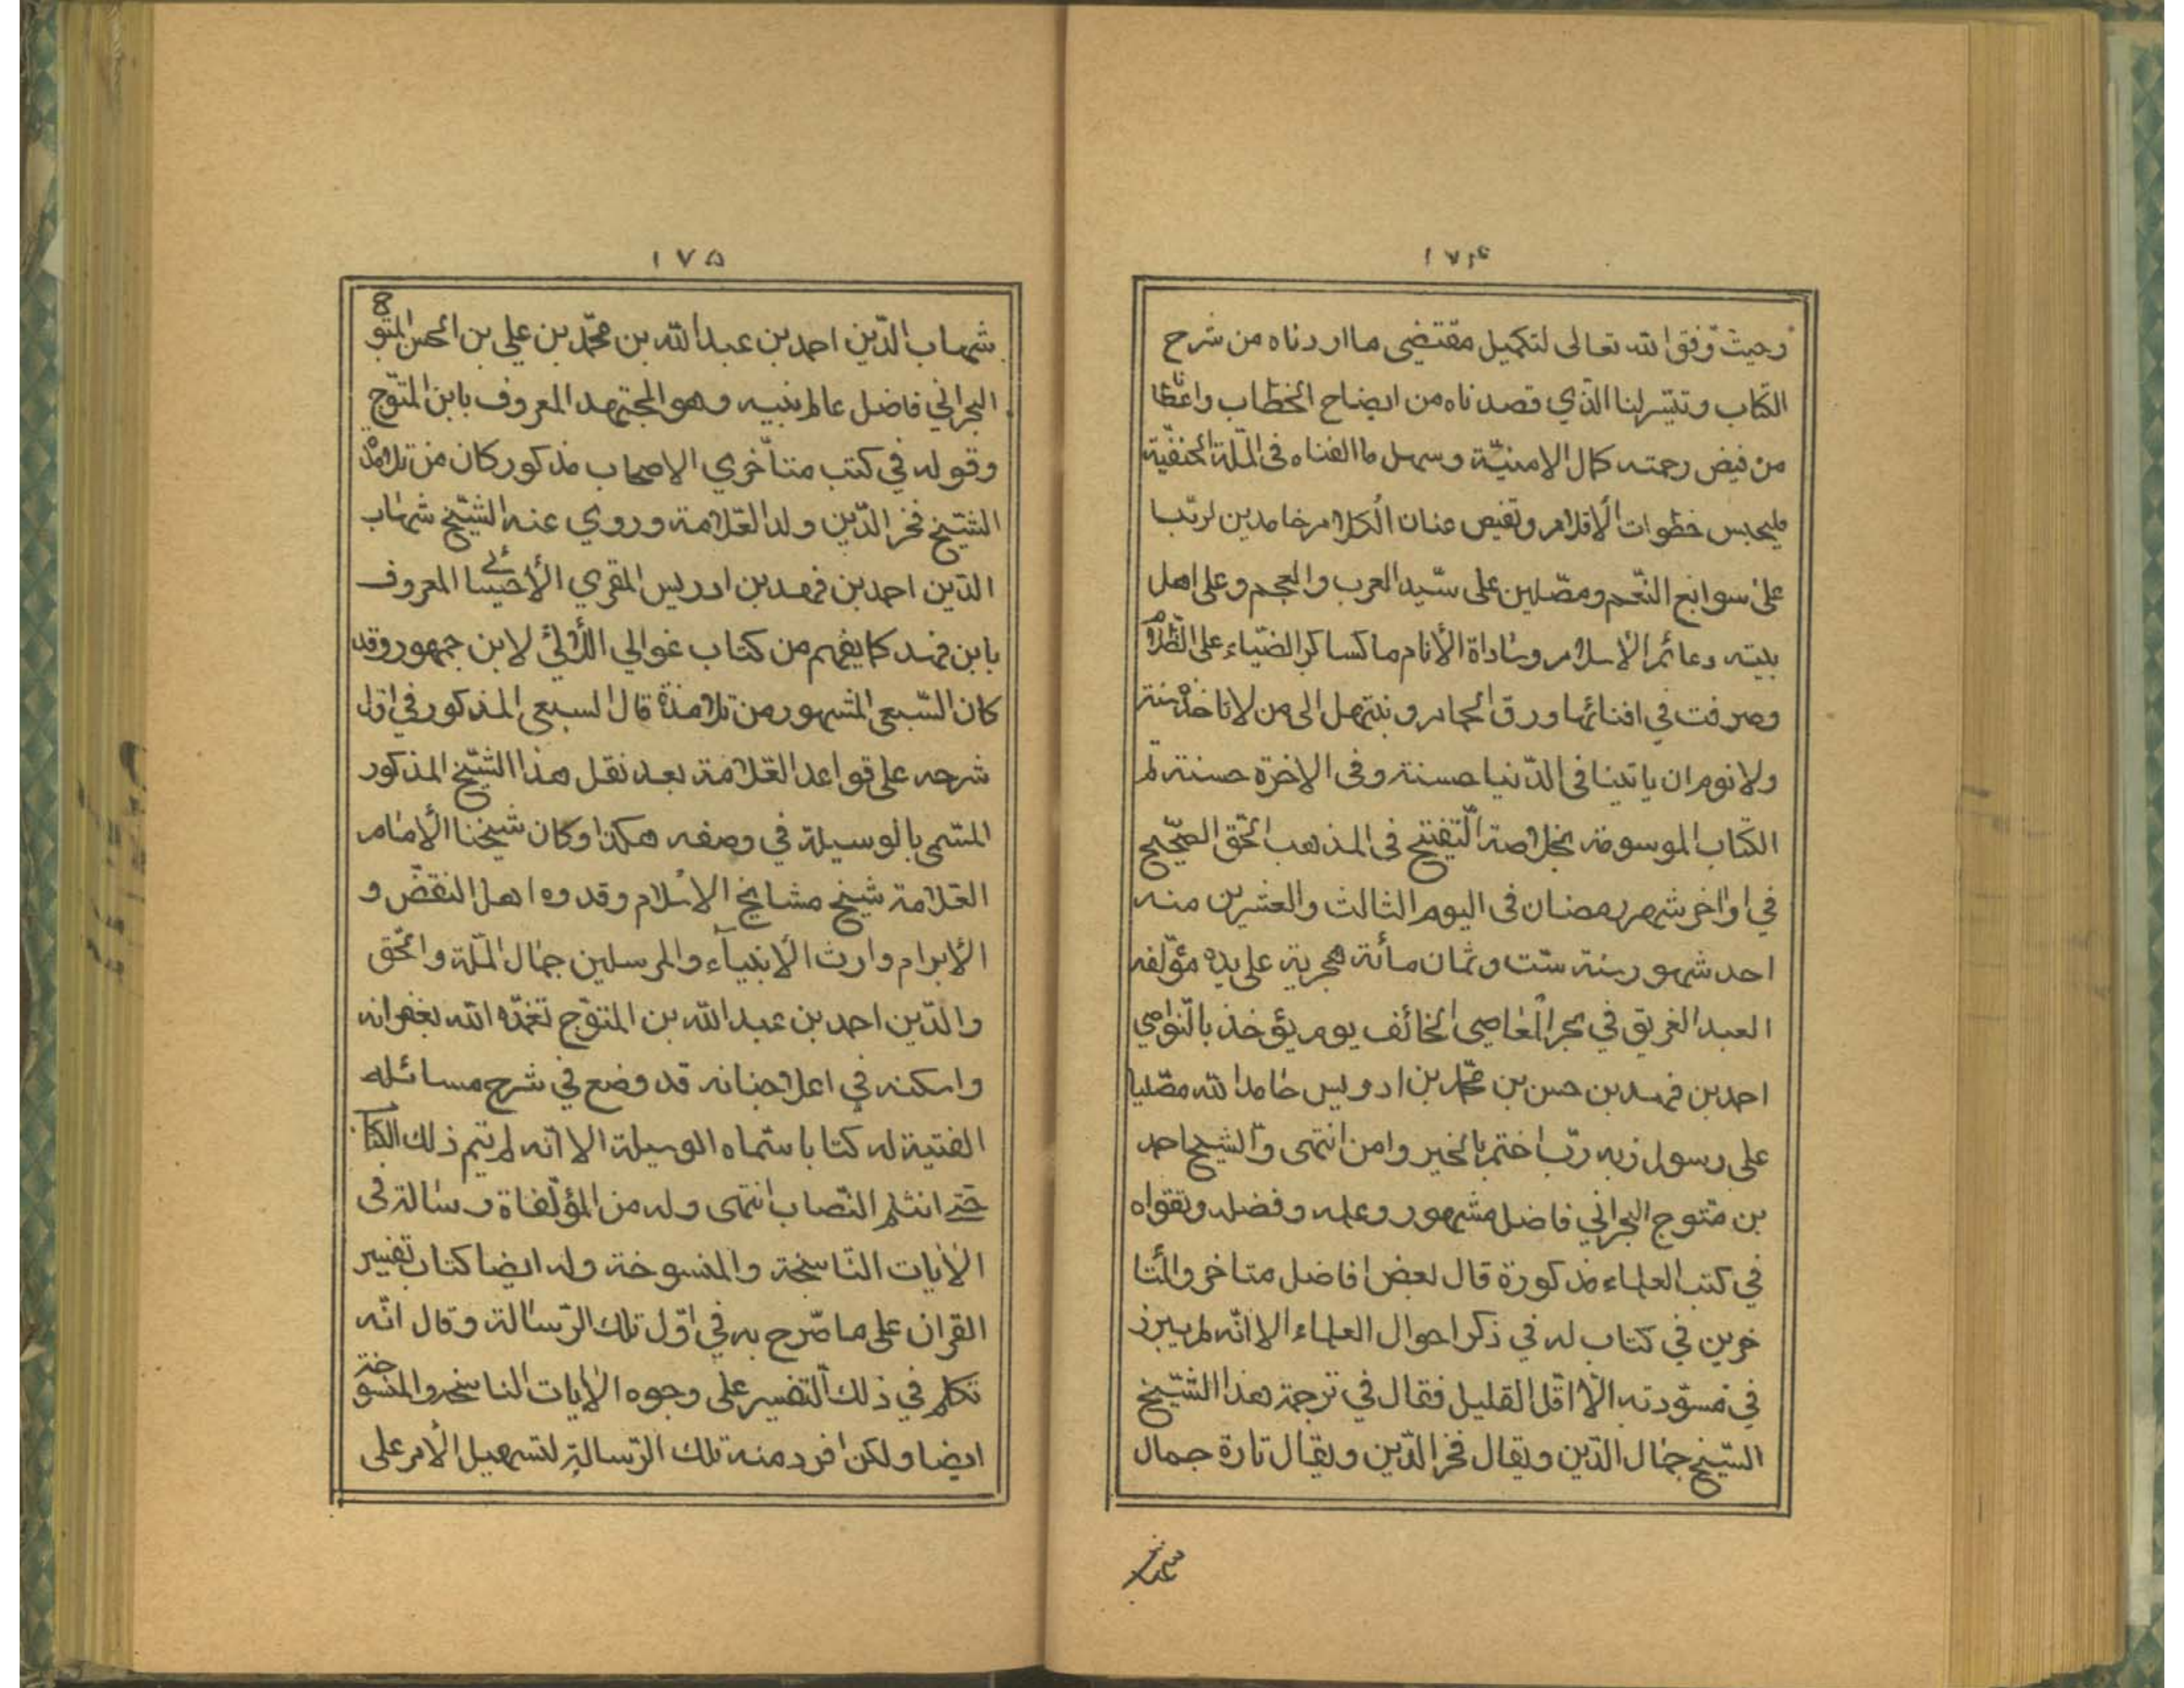 ١٧٤
وحيث وفق الله تعالى لتكميل مقتضى ما اردناه من شرح
الكتاب وتيسر لنا الذي قصدناه من ايضاح الخطاب واعطانا
من فيض رحمته كمال الامنيّة وسهل ما الفناه فى الملّة الحنفيّة
فليحبس خطوات الأقلام ونقبض عنان الكلام حامدين لربّنا
على سوابغ النّعم ومصّلين على سيّد العرب والعجم وعلى اهل
بيته دعائم الاسلام وساداة الأنام ما كسا كر الضيّاء على الظّلام
وصرفت في افنائها ورق الحمام ونبتهل الى من لا تاخذه سنة
ولا نوم ان ياتينا فى الدّنيا حسنة وفى الاخرة حسنة تم
الكتاب الموسومة بخلاصة التّنقيح فى المذهب الحّق الصّحيح
في اواخر شهر رمضان فى اليوم الثالث والعشرين منه
احد شهور سنة ستّ وثمان مائة هجرية على يده مؤلّفه
العبد الغريق في بحر المعاصى الخائف يوم يؤخذ بالنّواصي
احمد بن فهد بن حسن بن محّمد بن ادريس حامدا لله مصّليا
على رسول زبه ربّ اختم بالخير وامن انتهى والشيخ احمد
بن متوج البحراني فاضل مشهور وعلمه وفضله وتقواه
في كتب العلماء مذكورة قال بعض افاضل متاخر والمتا
خرين في كتاب له في ذكر احوال العلماء الا انّه لم يبرز
في مسوّدته الاّ اقّل القليل فقال في ترجمة هذا الشّيخ
الشّيخ جمال الدّين ويقال فخر الدّين ويقال تارة جمال
١٧٥
شهاب الدّين احمد بن عبد الله بن محمّد بن علي بن الحسن المتوّ
البحراني فاضل عالم نبيه وهو المجتهد المعروف بابن المتوّج
وقوله في كتب متأخري الاصحاب مذكور كان من تلامذة
الشّيخ فخر الدّين ولد العّلامة وروي عنه الشّيخ شهاب
الدّين احمد بن فهد بن ادريس المقري الأحيسائي المعروف
بابن فهد كما يفهم من كتاب غوالي اللّألئ لابن جمهور وقد
كان السّبعي المشهور من تلامذة قال السبعي المذكور في اول
شرحه على قواعد العّلامة بعد نقل هذا الشّيخ المذكور
المسّمى بالوسيلة في وصفه هكذا وكان شيخنا الأمام
العّلامة شيخ مشايخ الاسلام وقدوه اهل النقض و
الأبرام وارث الأنبياء والمرسلين جمال الملّة والحّق
والدّين احمد بن عبد الله بن المتوّج تغمّده الله بغفرانه
واسكنه في اعلا جنانه قد وضع في شرح مسائله
الفتية له كتابا سّماه الوسيلة الا انّه لم يتم ذلك الكتا
حتى انثلم النّصاب انتهى وله من المؤلّفاة رسالة فى
الأيات النّاسخة والمنسوخة وله ايضا كتاب تفسير
القران على ما صّرح به في اوّل تلك الرّسالة وقال انّه
تكلم في ذلك التّفسير على وجوه الأيات الناسخه والمنسوخة
ايضا ولكن افرد منه تلك الرّسالة لتسهيل الأمر على